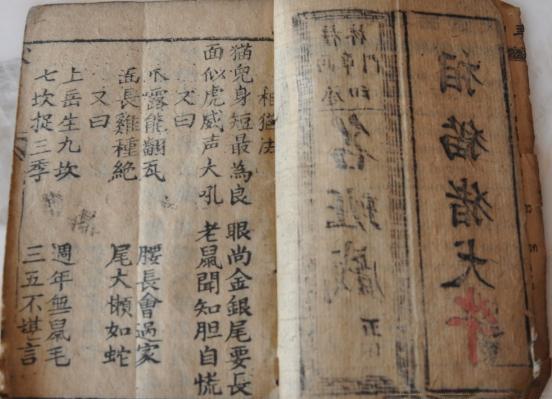 相猫猪犬牛
相猫法
猫兒身短最為良 眼尚金銀尾要長
面似虎威声大吼 老鼠聞知胆自慌
又曰
爪露能翻瓦 腰長會過家
面長雞種絶 尾大懶如蛇
又曰
上岳生九坎 週年無鼠毛
七坎捉三季 三五不堪言